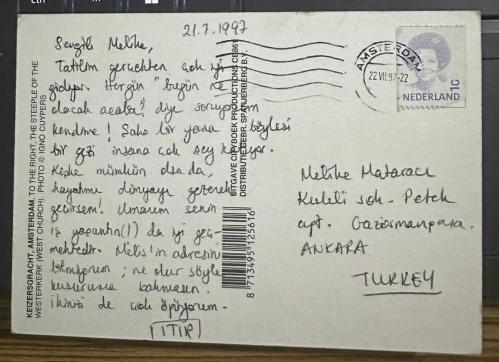 21.7.1997
Sevgili Melike,
Tatilim gerçekten çok iyi
gidiyor. Hergün "bugün ne
olacak acaba?" diye soruyorum
kendime! Şaka bir yana böylesi
bir gezi insana çok şey katıyor.
Keşke mümkün olsa da,
hayatımı dünyayı gezerek
geçirsem! Umarım senin
iş yaşantın(!) da iyi geç-
mektedir. Melis'in adresini
bilmiyorum; ne olur söyle
kusuruma bakmasın.
İkinizi de çok öpüyorum.
KEIZERSGRACHT, AMSTERDAM, TO THE RIGHT, THE STEEPLE OF THE
WESTERKERK (WEST CHURCH). PHOTO © IGNO CUYPERS
UITGAVE CITYBOEK PRODUCTIONS
DISTRIBUTIE GEBR. SPANJERBERG B.V.
8 713495 125616
AMSTERDAM
22 VII.97
NEDERLAND
1G
Melike
Kuleli sok. Petek
apt. Gaziosmanpaşa.
ANKARA
TURKEY